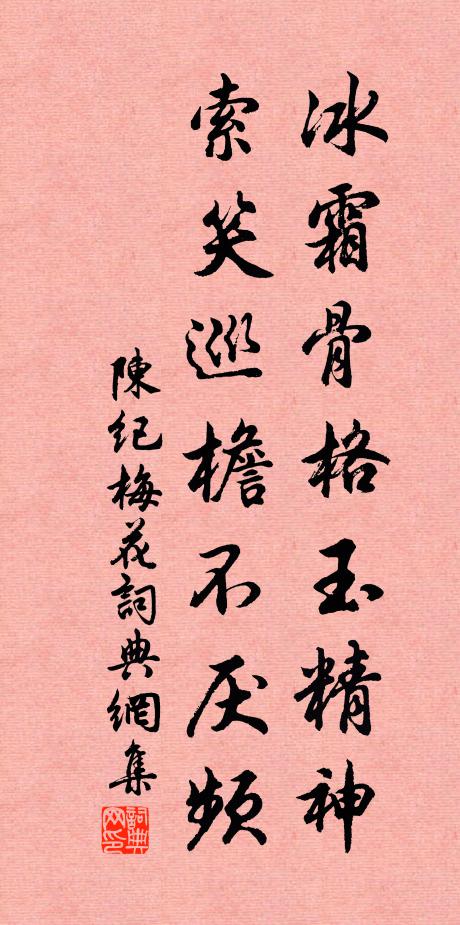 冰霜骨格玉精神
索笑巡檐不厌頻
陳纪梅花詞典網集
詞典网印